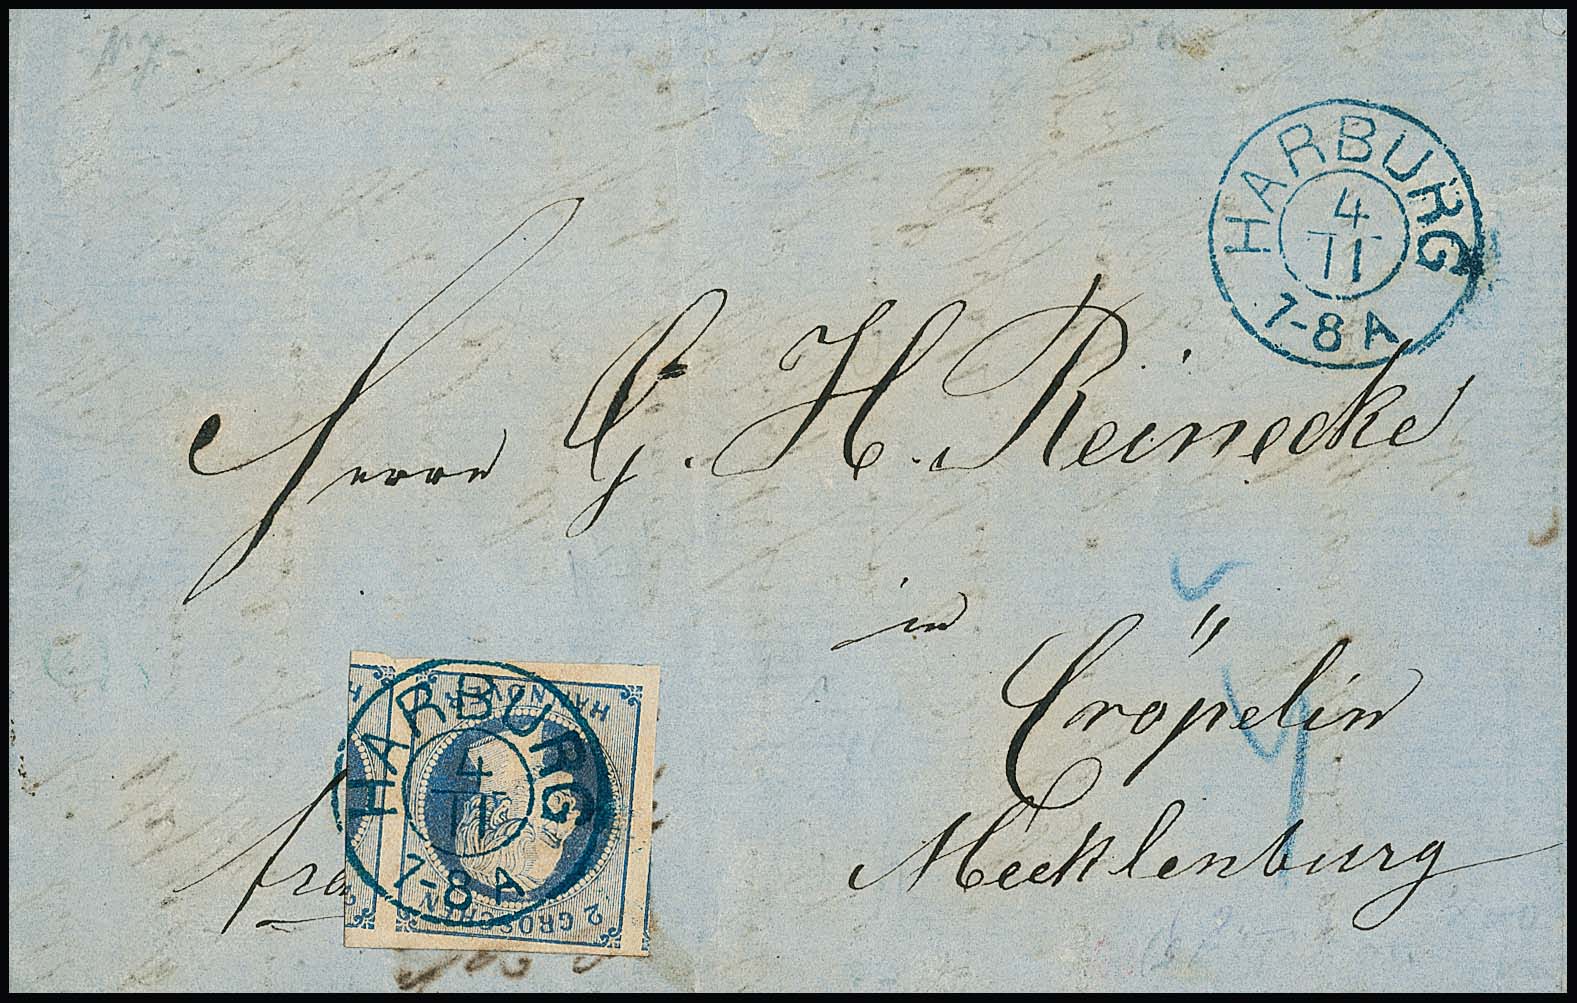 HARBURG
4
11
7-8 A
Herrn G. H. Reinecke
in
Cröpelin
Mecklenburg
fra
HANNOVER
HARBURG
4
11
7-8 A
2 GROSCHEN